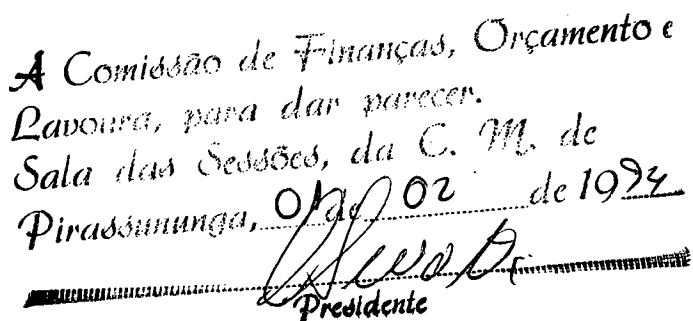 A Comissão de Finanças, Orçamento e
Lavoura, para dar parecer.
Sala das Sessões, da C. M. de
Pirassununga, 01 de 02 de 1994
Presidente